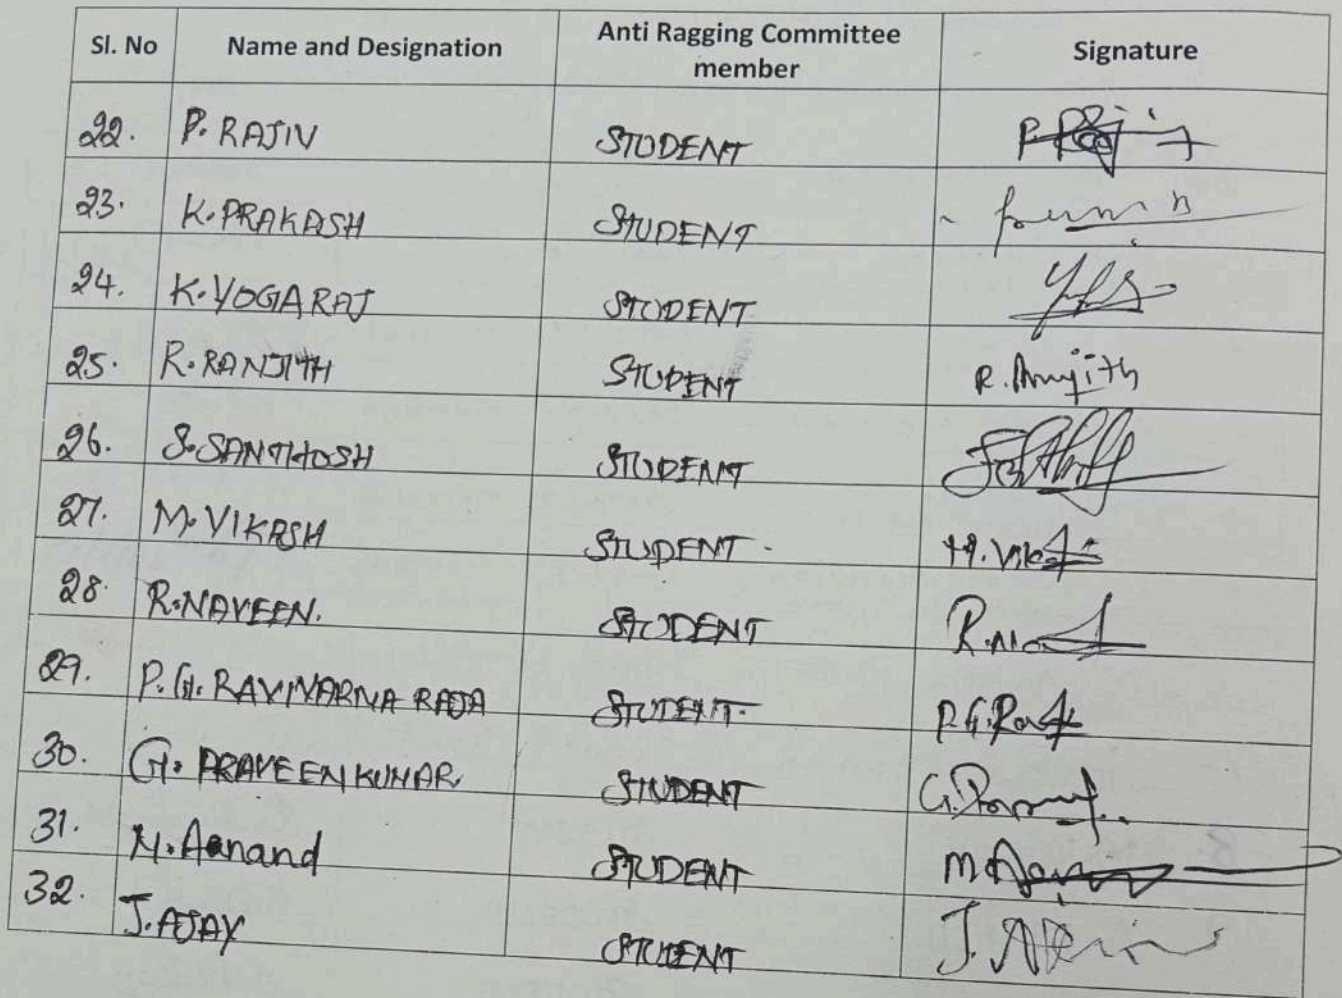 Sl. No Name and Designation Anti Ragging Committee member Signature
22. P. RAJIV STUDENT
23. K. PRAKASH STUDENT
24. K. YOGARAJ STUDENT
25. R. RANJITH STUDENT R.
26. S. SANTHOSH STUDENT
27. M. VIKASH STUDENT
28. R. NAVEEN. STUDENT R.
29. P. G. RAVIVARNA RAJA STUDENT. P.G.
30. G. PRAVEENKUMAR. STUDENT G.
31. M. Aanand STUDENT M
32. J. AJAY STUDENT J.